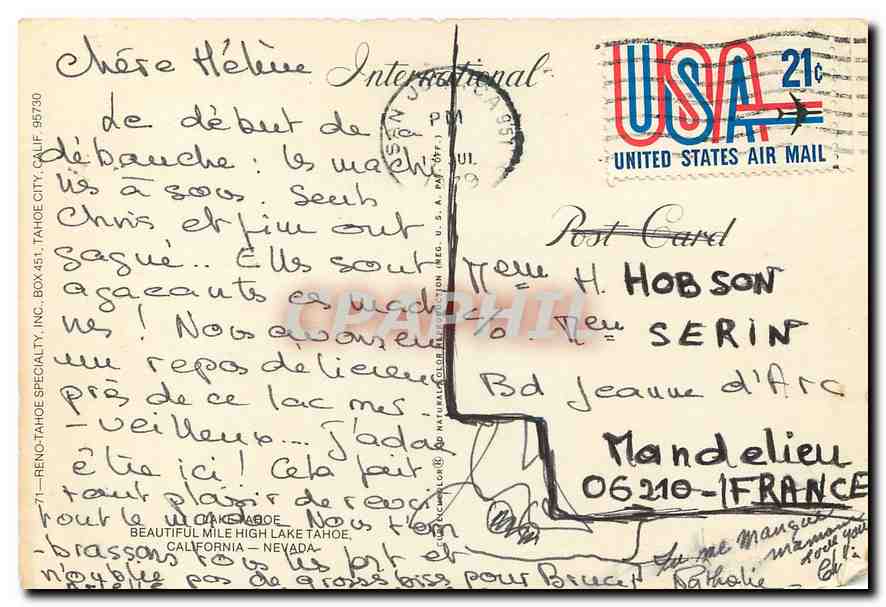 Chére Hélène
Le début de
débauche : les machi
nes à sous. Seuls
Chris et Jim ont
gagné.. Elles sont
agacantes ces machi
nes ! Nous avons eu
un repos délicieux
près de ce lac mer-
-veilleux.... J'adore
être ici ! Cela fait
tant plaisir de revoir
tout le monde. Nous t'em
-brassons tous les
n'oublie pas de grosses bises pour Bruce
International
Post Card
USA 21c
UNITED STATES AIR MAIL
PM
JUL
Mme H. HOBSON
c/o Mme SERIN
Bd Jeanne d'Arc
Mandelieu
06210-FRANCE
Tu me manques
maman
love you
Nathalie
71—RENO-TAHOE SPECIALTY, INC., BOX 451, TAHOE CITY, CALIF. 95730
LAKE TAHOE
BEAUTIFUL MILE HIGH LAKE TAHOE,
CALIFORNIA — NEVADA
NATURAL COLOR REPRODUCTION (REG. U. S. A. PAT. OFF.)
CPAPHIL